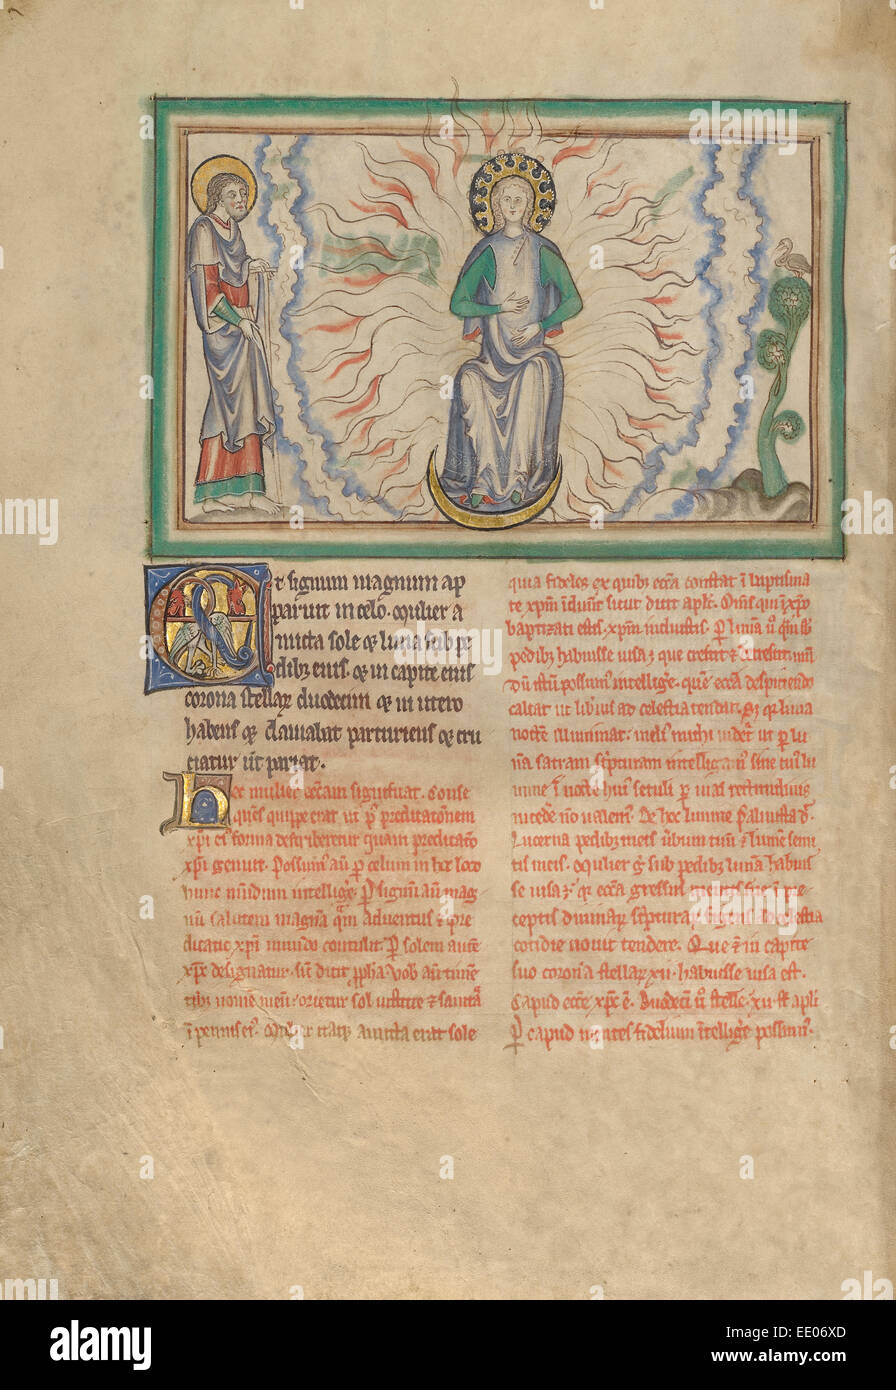 Et signum magnum ap
paruit in celo. Mulier a
micta sole & luna sub pe
dib; eius. & in capite eius
corona stellarum duodecim & in utero
habens & clamabat parturiens & cru
ciatur ut pariat.
Hec mulier eccam significat. Conse
quens quippe erat ut per predicationem
xpi eius forma describeretur quam predicatio
xpi genuit. Possum aut per celum in hoc loco
hunc mundum intellige. Per signum aut mag
num salutem magnam quam aduentus & pre
dicatio xpi mundo contulit. Per solem autem
xpc designatur. sicut dicit propheta Vob aut timen
tib nomen meum. orietur sol iusticie & sanitas
in pennis eius. Mulier itaque amicta erat sole
quia fideles ex quibus ecca constat in baptisma
te xpm induunt sicut dicit aplc. Omnes qui in xpo
baptizati estis. xpm induistis. Per lunam quam sub
pedib; habuisse uisa que crescit & decrescit mun
dum istum possumus intellige. quem ecca despiciendo
calcat ut liberius ad celestia tendat. Et quia luna
noctem illuminat. melius michi uidetur ut per lu
nam sacram scripturam intelligamus sine cuius lu
mine in nocte huius seculi per uias rectitudinis
incedere non ualemus. De hoc lumine psalmista dicit
Lucerna pedib; meis uerbum tuum & lumen semi
tis meis. Mulier ergo sub pedib; lunam habuis
se uisa quia ecca gressum mentis sue in pre
ceptis diuinarum scripturarum figens ad celestia
cotidie nouit tendere. Que & in capite
suo coronam stellarum xii. habuisse uisa est.
Capud ecce xpc e. Duodecim stelle. xii. st apli
Per capud mentes fidelium intellige possumus.
a alamy stock photo
EE06XD
www.alamy.com